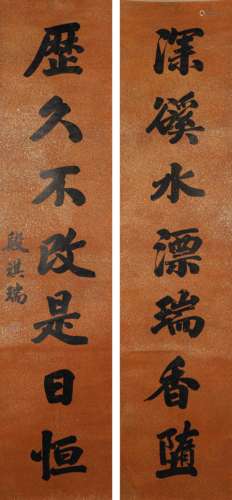 深溪水漂瑞香随
歷久不改是日恒
段祺瑞